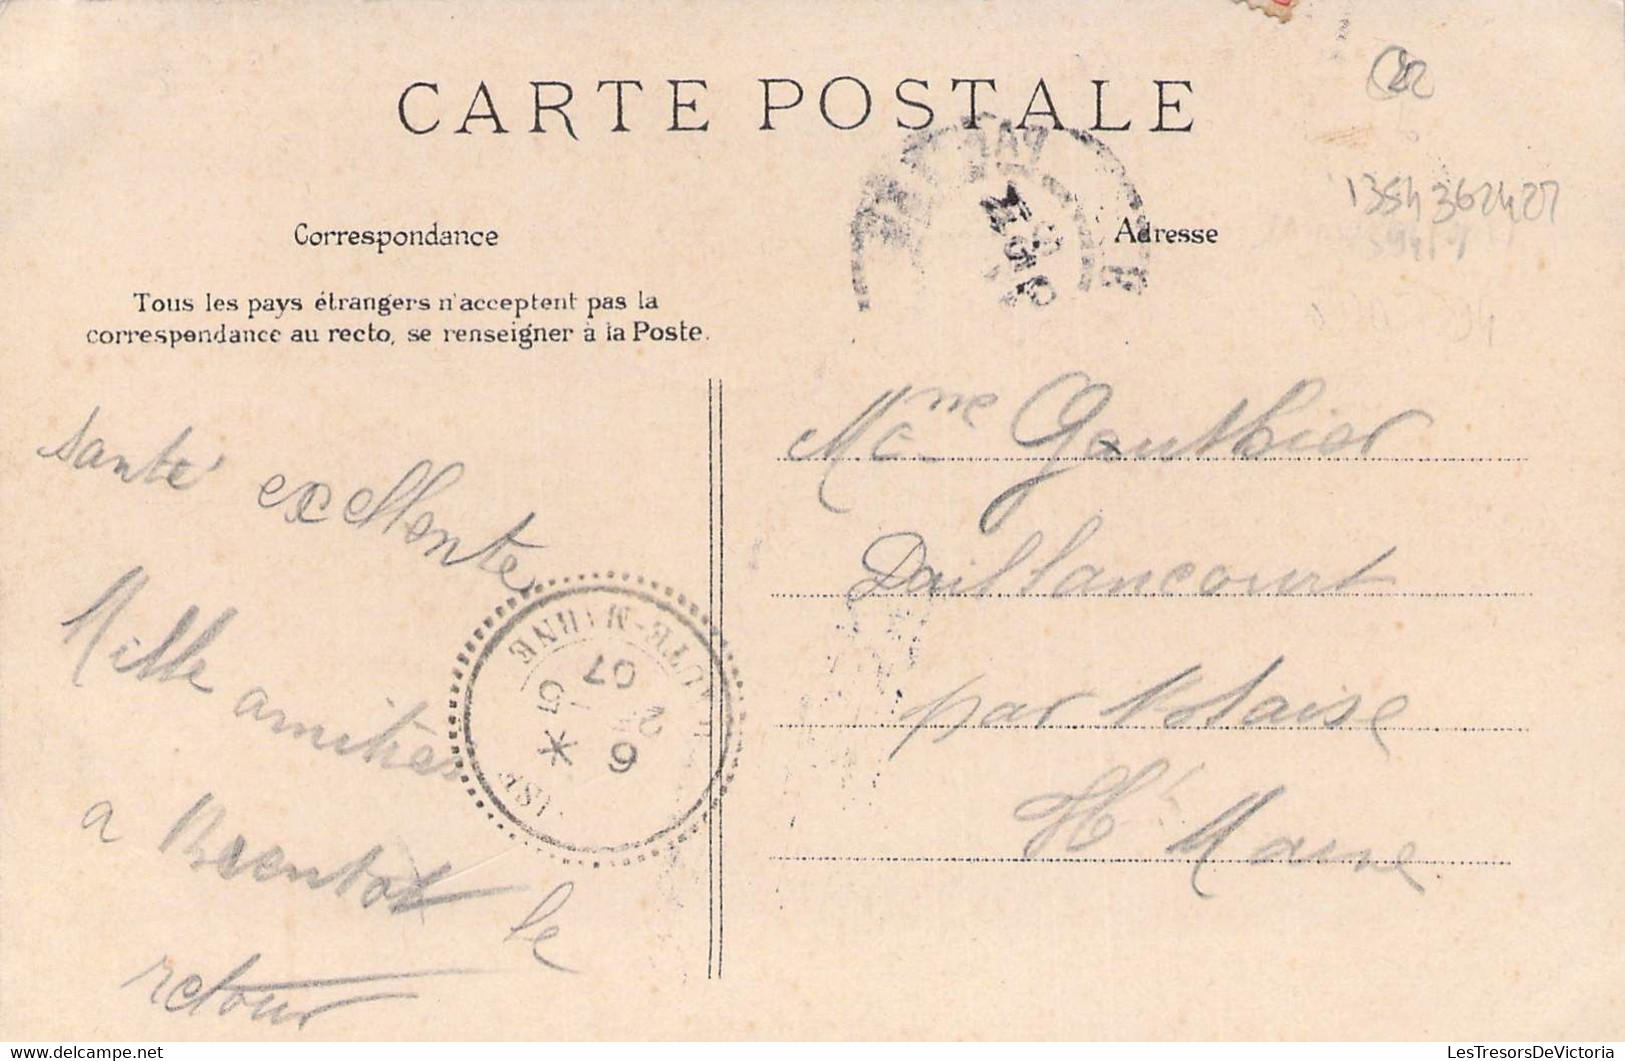 CARTE POSTALE
Correspondance
Tous les pays étrangers n'acceptent pas la
correspondance au recto, se renseigner à la Poste.
santé excellente
Mille amitiés
a Bientot le
retour
Adresse
Mme Gauthier
Daillancourt
par
Hte Marne
1354362427
HAUTE-MARNE
5 * 6
07
LesTresorsDeVictoria